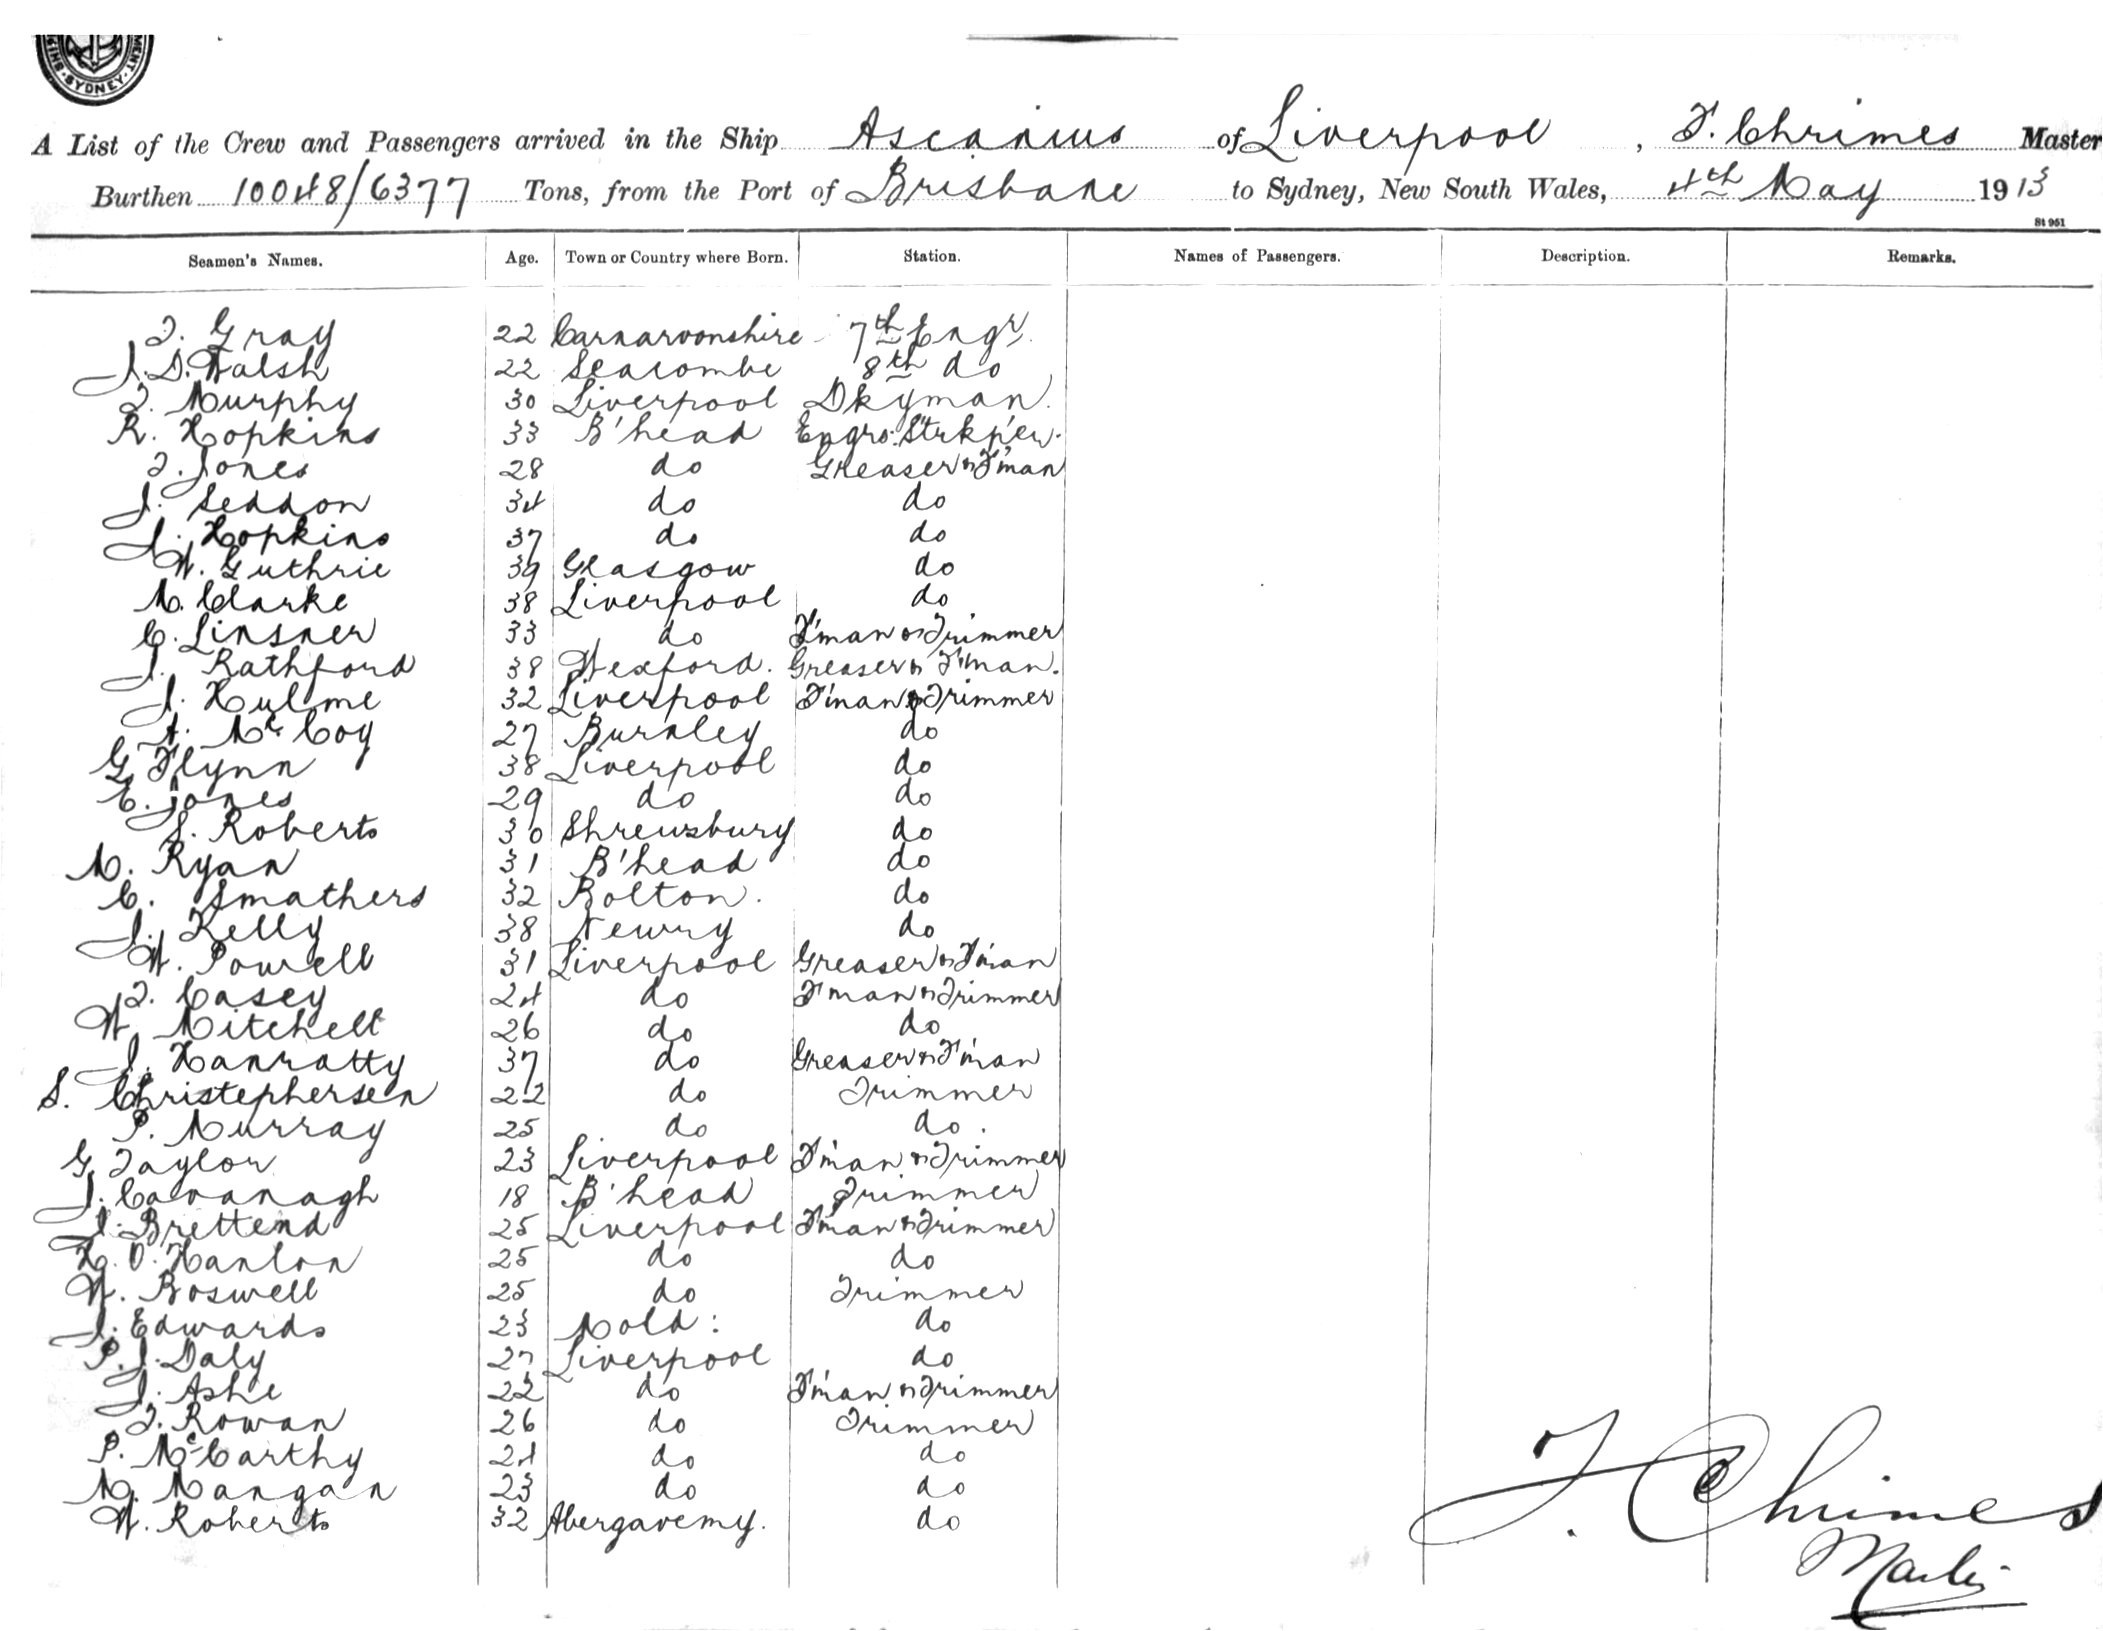 SYDNEY
A List of the Crew and Passengers arrived in the Ship Ascanius of Liverpool, F. Chrimes Master
Burthen 10048/6377 Tons, from the Port of Brisbane to Sydney, New South Wales, 4th May 1913
St 951
Seamen's Names. Age. Town or Country where Born. Station. Names of Passengers. Description. Remarks.
T. Gray 22 Carnarvonshire 7th Engr.
J. D. Walsh 22 Seacombe 8th do
T. Murphy 30 Liverpool Dkyman.
R. Hopkins 33 B'head Engrs. Strkp'er.
T. Jones 28 do Greaser or F'man
J. Seddon 34 do do
J. Hopkins 37 do do
W. Guthrie 39 Glasgow do
M. Clarke 38 Liverpool do
C. Linsner 33 do F'man or Trimmer
J. Rathford 38 Wexford. Greaser or F'man.
J. Hulme 32 Liverpool F'man or Trimmer
A. McCoy 27 Burnley do
G. Flynn 38 Liverpool do
E. Jones 29 do do
S. Roberts 30 Shrewsbury do
M. Ryan 31 B'head do
C. Smathers 32 Bolton. do
J. Kelly 38 Newry do
W. Powell 31 Liverpool Greaser or F'man
T. Casey 24 do F'man or Trimmer
W. Mitchell 26 do do
J. Hanratty 37 do Greaser or F'man
S. Christephersen 22 do Trimmer
P. Murray 25 do do.
G. Taylor 23 Liverpool F'man or Trimmer
J. Cavanagh 18 B'head Trimmer
J. Brettend 25 Liverpool F'man or Trimmer
H. O'Hanlon 25 do do
W. Boswell 25 do Trimmer
J. Edwards 23 Mold: do
P. J. Daly 27 Liverpool do
J. Ashe 22 do F'man or Trimmer
T. Rowan 26 do Trimmer
P. McCarthy 24 do do
M. Mangan 23 do do
W. Roberts 32 Abergavemy. do
F. Chrimes
Master